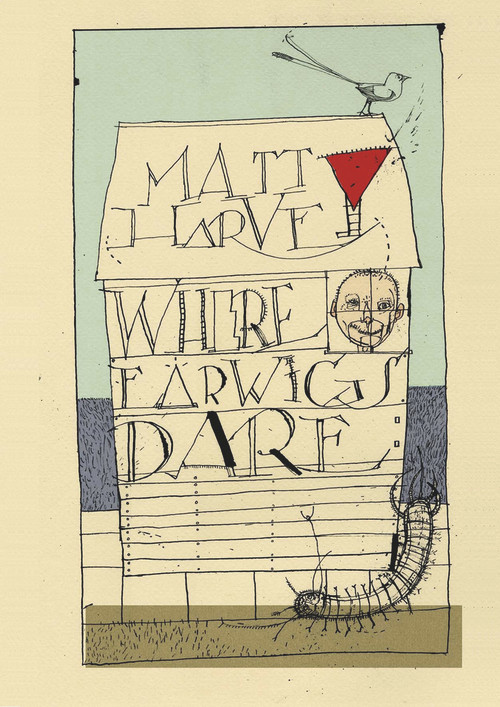 MATT
HARVEY
WHERE
EARWIGS
DARE